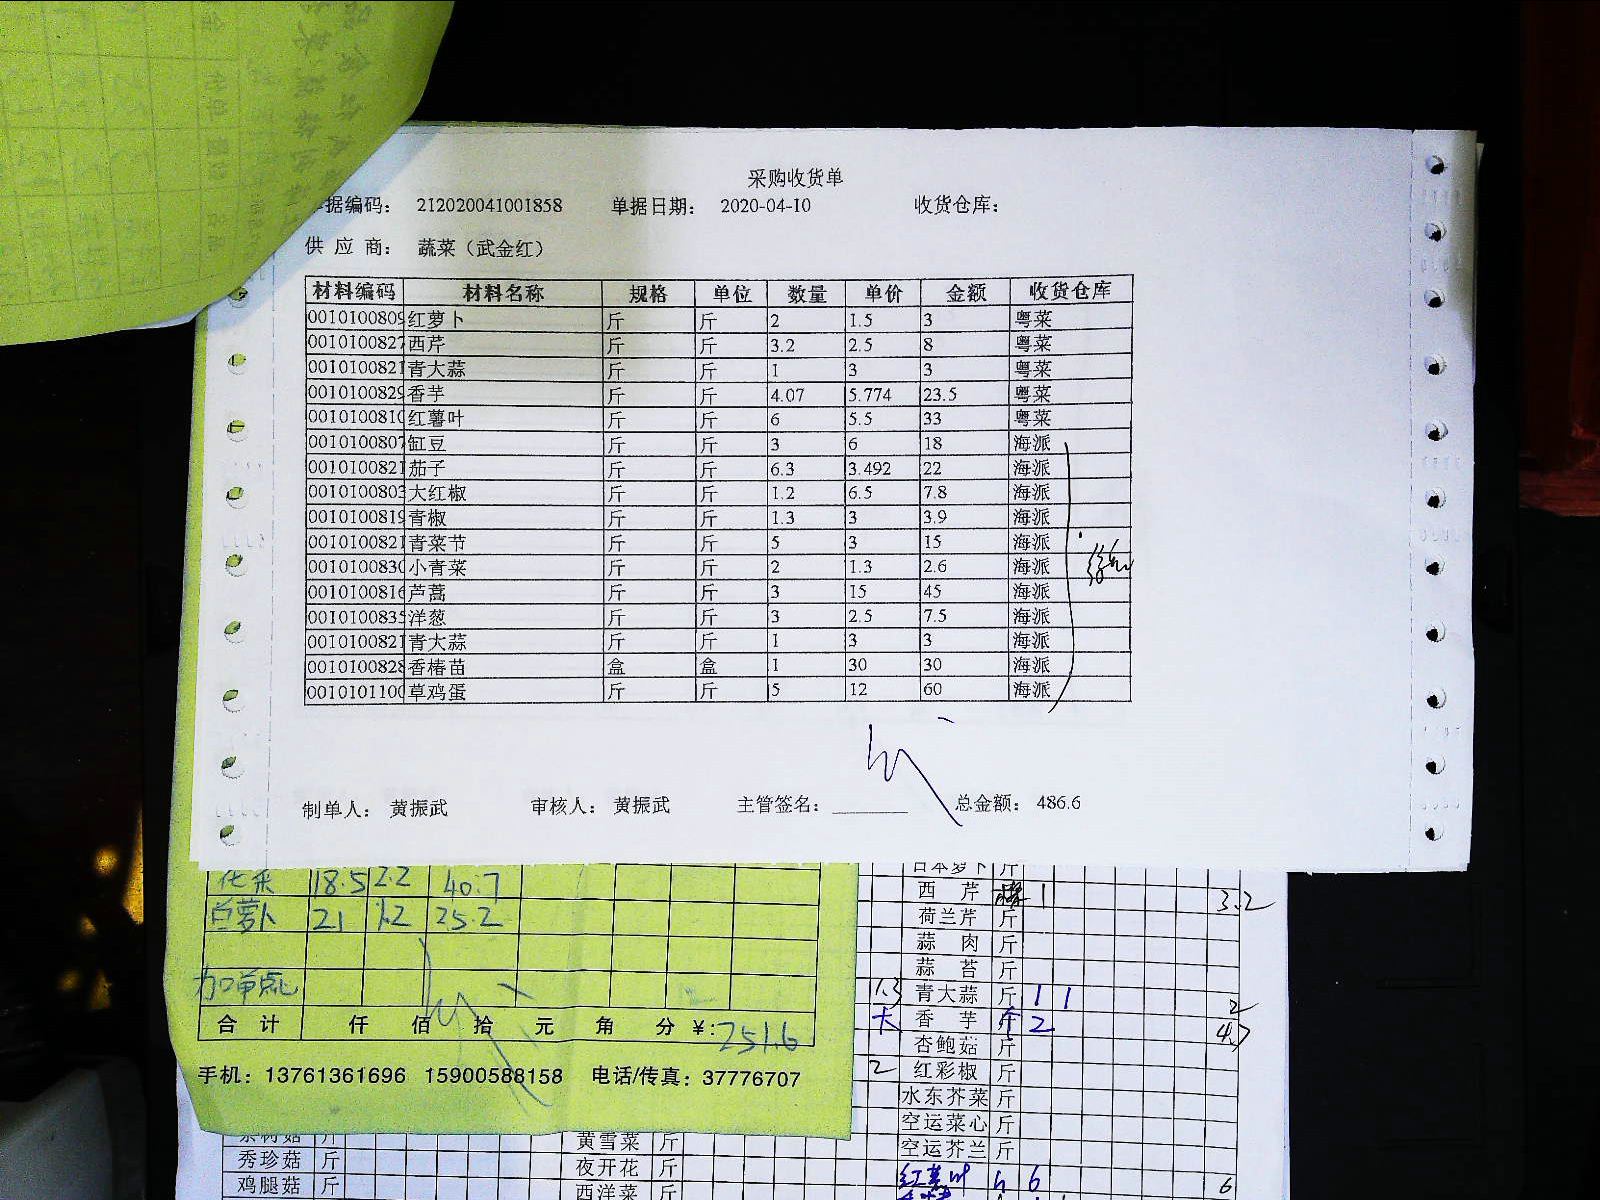 采购收货单
据编码： 212020041001858 单据日期： 2020-04-10 收货仓库：
供 应 商： 蔬菜（武金红）
材料编码 材料名称 规格 单位 数量 单价 金额 收货仓库
0010100809 红萝卜 斤 斤 2 1.5 3 粤菜
0010100827 西芹 斤 斤 3.2 2.5 8 粤菜
0010100821 青大蒜 斤 斤 1 3 3 粤菜
0010100829 香芋 斤 斤 4.07 5.774 23.5 粤菜
0010100810 红薯叶 斤 斤 6 5.5 33 粤菜
0010100807 缸豆 斤 斤 3 6 18 海派
0010100821 茄子 斤 斤 6.3 3.492 22 海派
0010100803 大红椒 斤 斤 1.2 6.5 7.8 海派
0010100819 青椒 斤 斤 1.3 3 3.9 海派
0010100821 青菜节 斤 斤 5 3 15 海派
0010100830 小青菜 斤 斤 2 1.3 2.6 海派
0010100816 芦蒿 斤 斤 3 15 45 海派
0010100835 洋葱 斤 斤 3 2.5 7.5 海派
0010100821 青大蒜 斤 斤 1 3 3 海派
0010100828 香椿苗 盒 盒 1 30 30 海派
0010101100 草鸡蛋 斤 斤 5 12 60 海派
制单人： 黄振武 审核人： 黄振武 主管签名： 总金额： 486.6
花菜 18.5 2.2 40.7
白萝卜 21 1.2 25.2
合 计 仟 佰 拾 元 角 分 ¥: 251.6
手机：13761361696 15900588158 电话/传真：37776707
日本萝卜 斤
西 芹 1 3.2
荷兰芹 斤
蒜 肉 斤
蒜 苔 斤
青大蒜 斤 1 1 2
香 芋 斤 2 4.7
杏鲍菇 斤
2 红彩椒 斤
水东芥菜 斤
空运菜心 斤
空运芥兰 斤
红薯叶 6 6
黄雪菜 斤
秀珍菇 斤 夜开花 斤
鸡腿菇 斤 西洋菜 斤